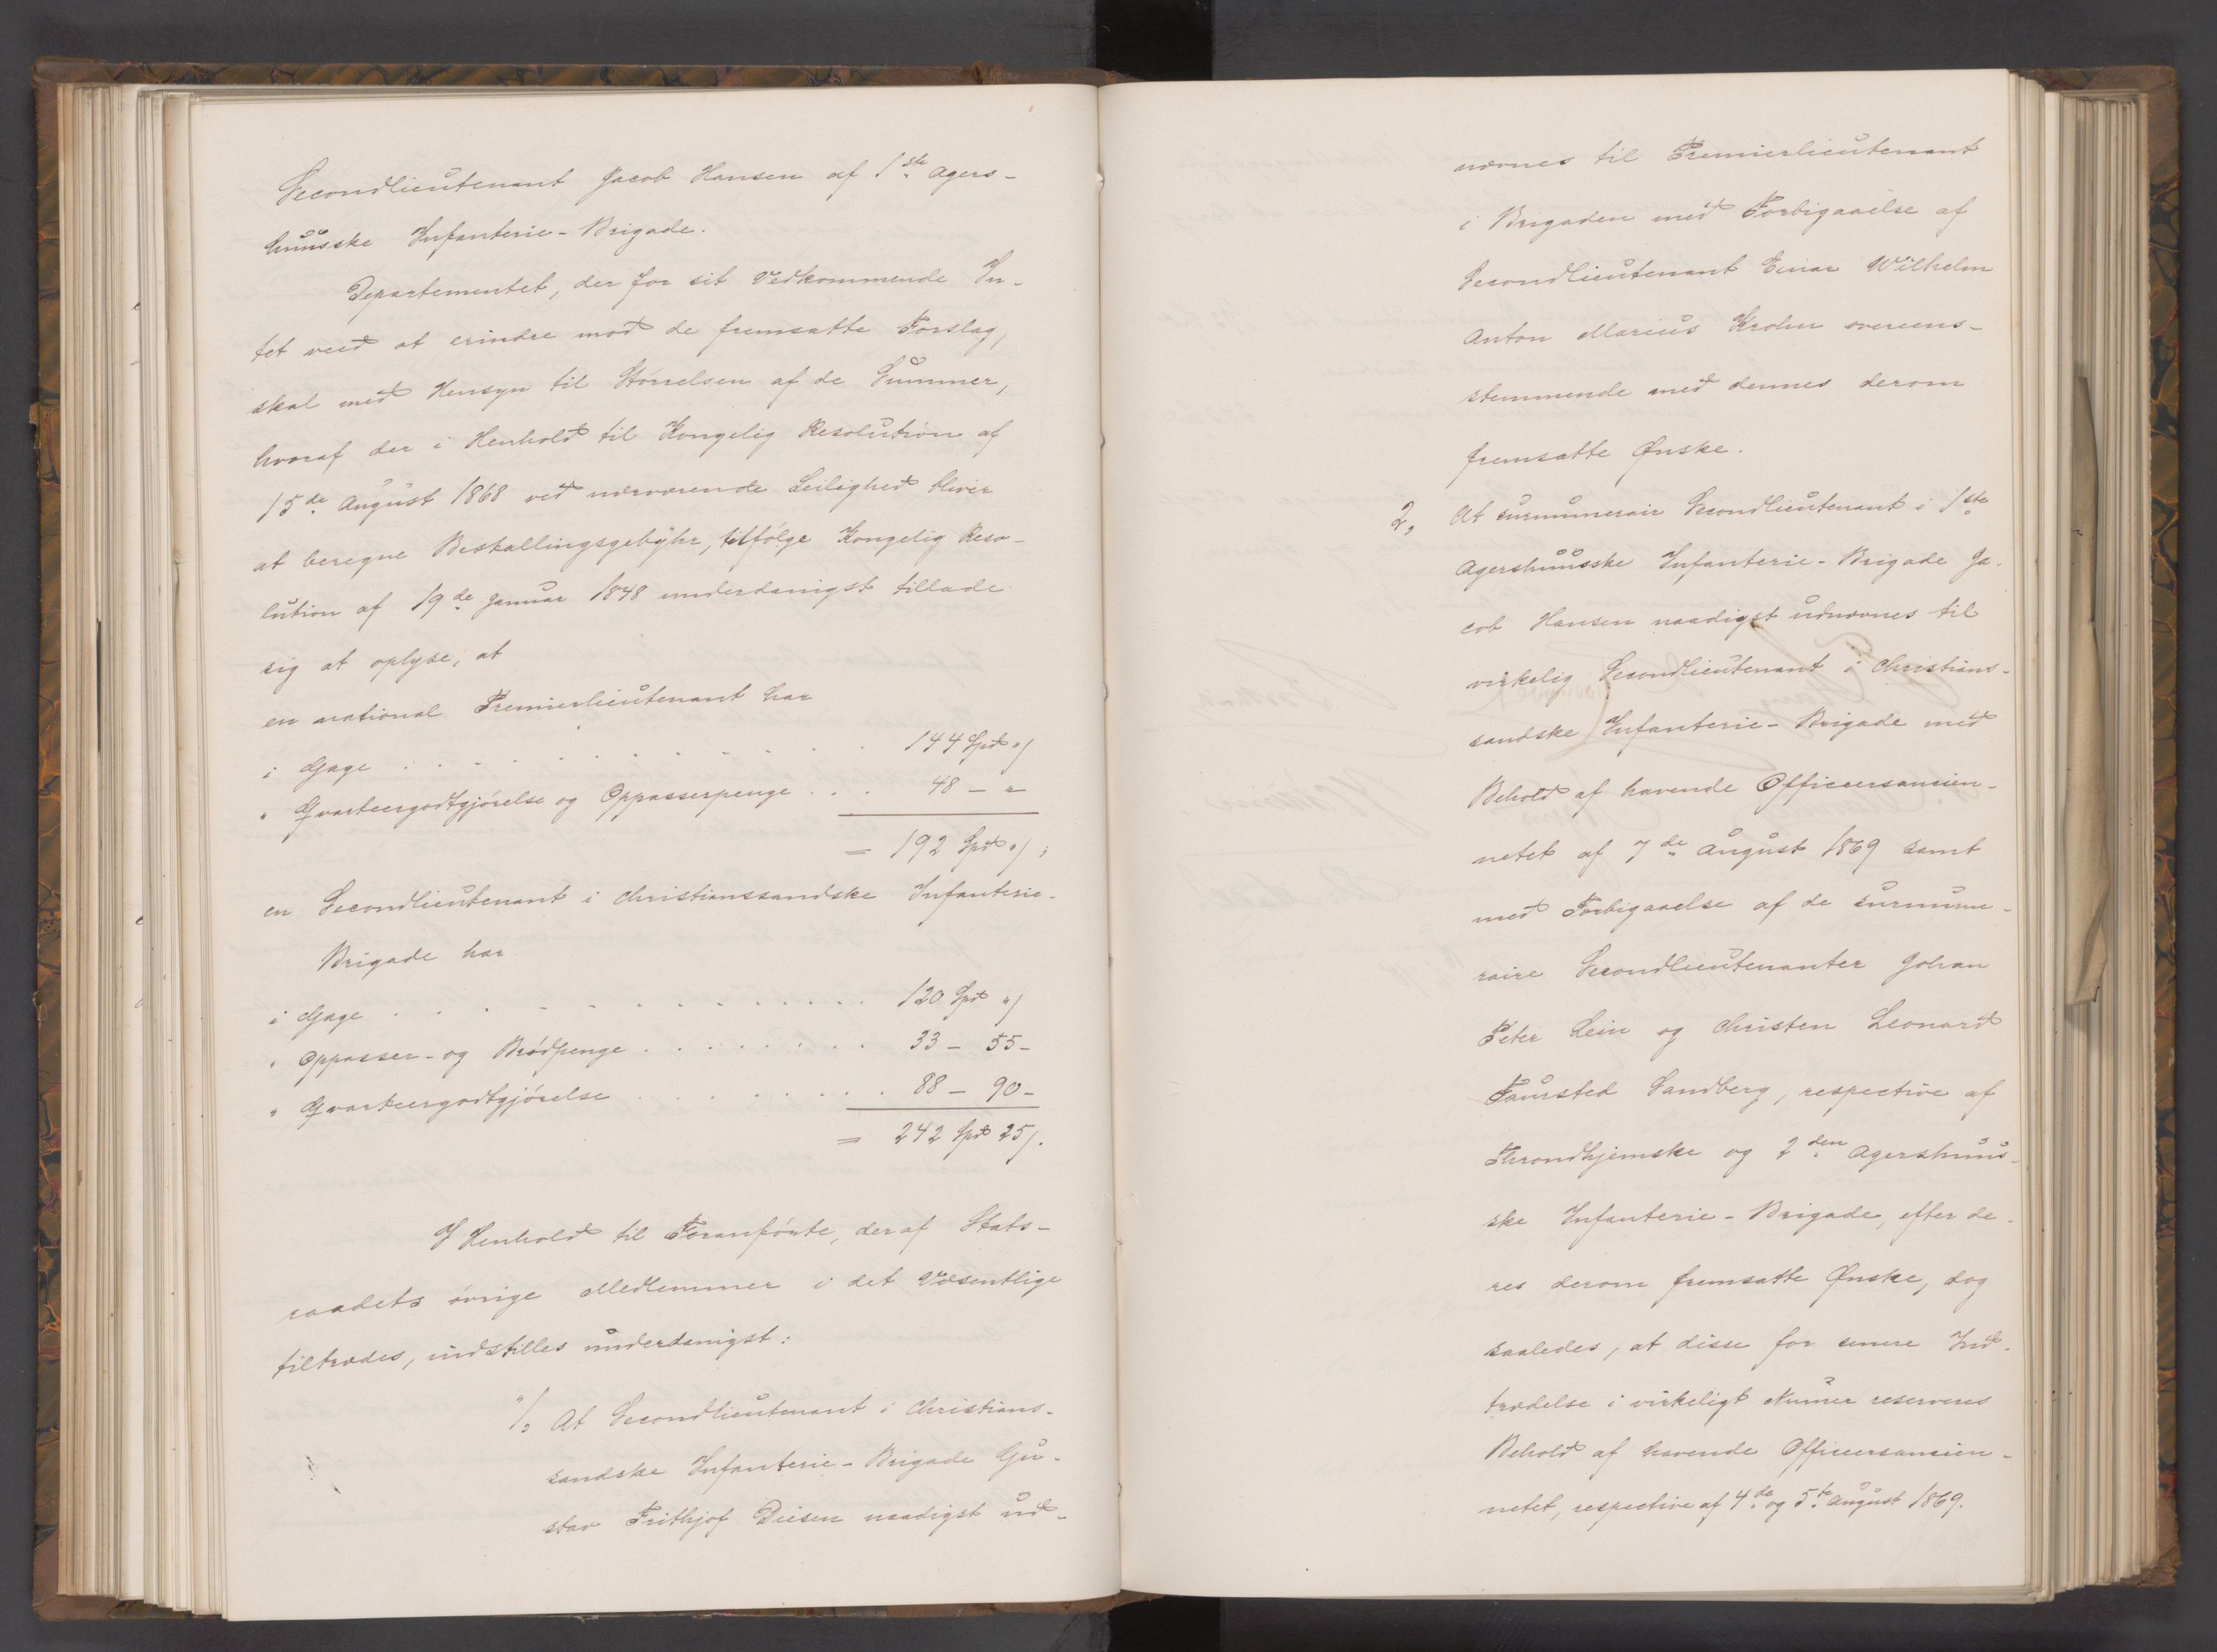 Secondlieutenant Jacob Hansen af 1ste Agers-
huusske Infanterie-Brigade.
Departementet, der for sit Vedkommende In-
tet veed at erindre mod de fremsatte Forslag,
skal med Hensyn til Störrelsen af de Summer,
hvoraf der i Henhold til Kongelig Resolution af
15de August 1868 ved nærværende Leilighed bliver
at beregne Bestallingsgebyhr, tilfölge Kongelig Reso-
lution af 19de Januar 1848 underdanigst tillade
sig at oplyse, at
en national Premierlieutenant har
i Gage . . . . . . . . . . 144 Spd "/
" Qvarteergodtgjörelse og Oppasserpenge . . . 48 - "
= 192 Spd "/;
en Secondlieutenant i Christianssandske Infanterie-
Brigade har
i Gage . . . . . . . . . . . 120 Spd "/
" Oppasser- og Brödpenge . . . . . . . 33 - 55-
" Qvarteergodtgjörelse . . . . . . . 88 - 90-
= 242 Spd 25/.
I Henhold til Foranförte, der af Stats-
raadets övrige Medlemmer i det Væsentlige
tiltrædes, indstilles underdanigst:
"1, At Secondlieutenant i Christians-
sandske Infanterie-Brigade Gu-
stav Frithjof Diesen naadigst ud-
nævnes til Premierlieutenant
i Brigaden med Forbigaaelse af
Secondlieutenant Einar Wilhelm
Anton Marius Krohn overeens-
stemmende med dennes derom
fremsatte Ønske.
2, At surnumerair Secondlieutenant i 1ste
Agershuusske Infanterie-Brigade Ja-
cob Hansen naadigst udnævnes til
virkelig Secondlieutenant i Christians-
sandske Infanterie-Brigade med
Behold af havende Officeersancien-
netet af 7de August 1869 samt
med Forbigaaelse af de surnume-
raire Secondlieutenanter Johan
Peter Lein og Christen Leonard
Faursted Sandberg, respective af
Throndhjemske og 2den Agershuus-
ske Infanterie-Brigade, efter de-
res derom fremsatte Ønske, dog
saaledes, at disse for senere Ind-
trædelse i virkeligt Numer reserveres
Behold af havende Officeersancien-
netet, respective af 4de og 5te August 1869.